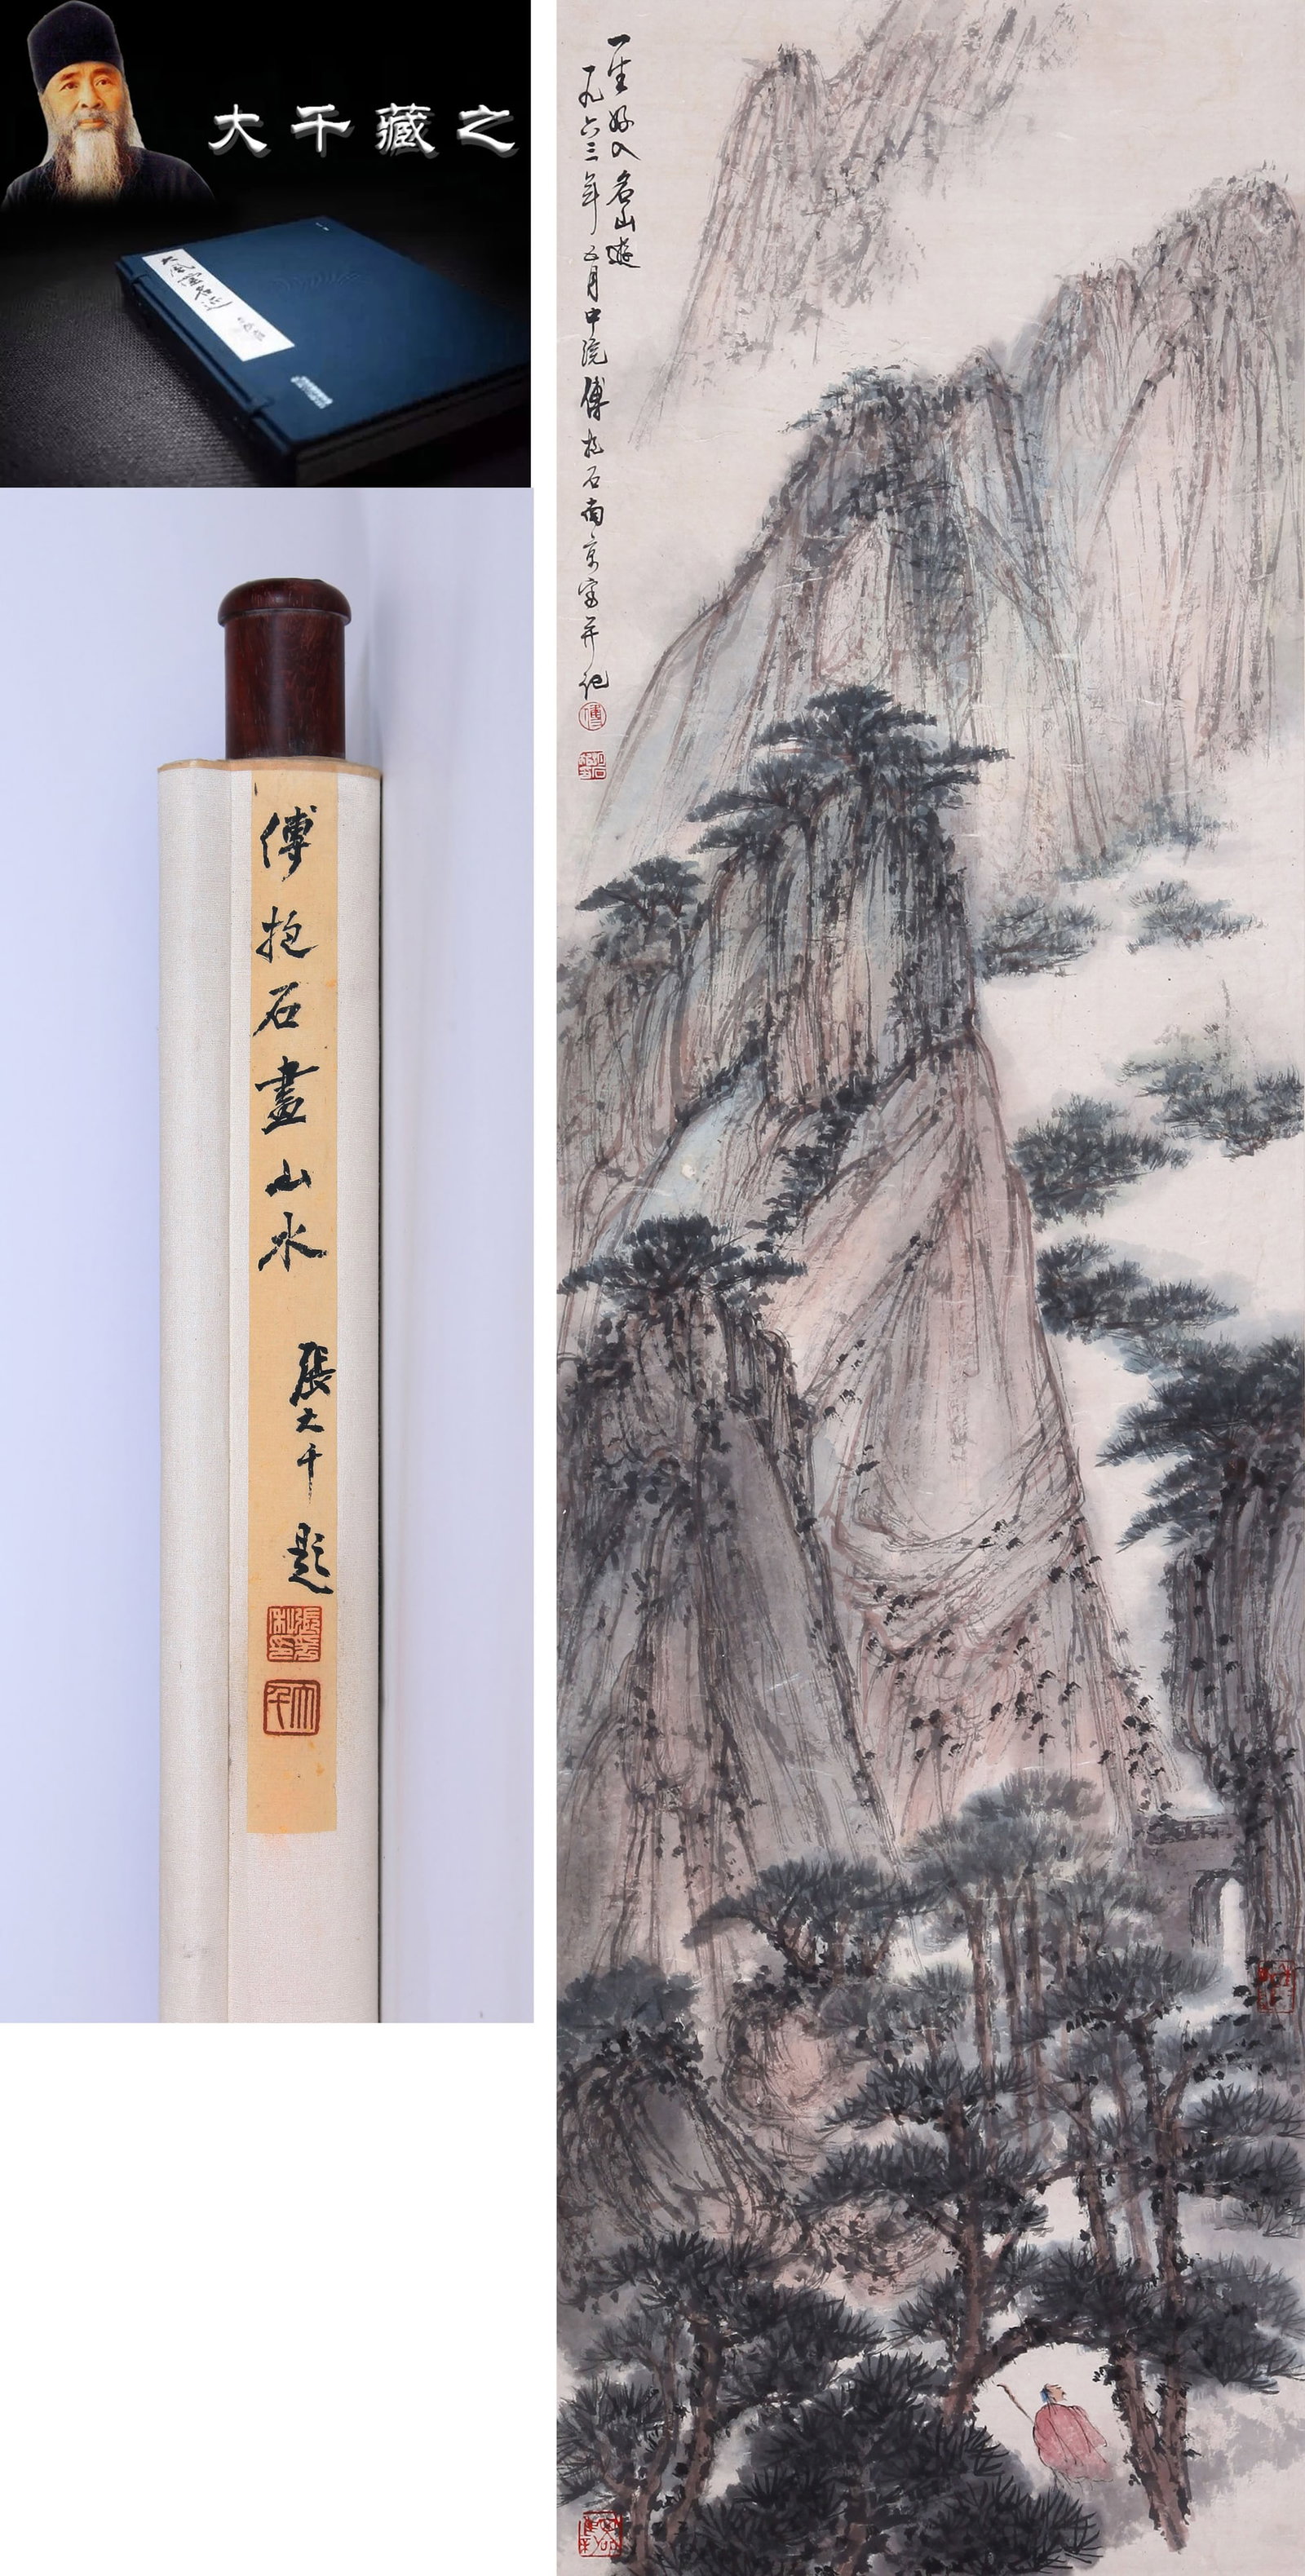 大千藏之
傅抱石畫山水
張大千題
一生好入名山遊
一九六三年五月中浣傅抱石南京寫并記